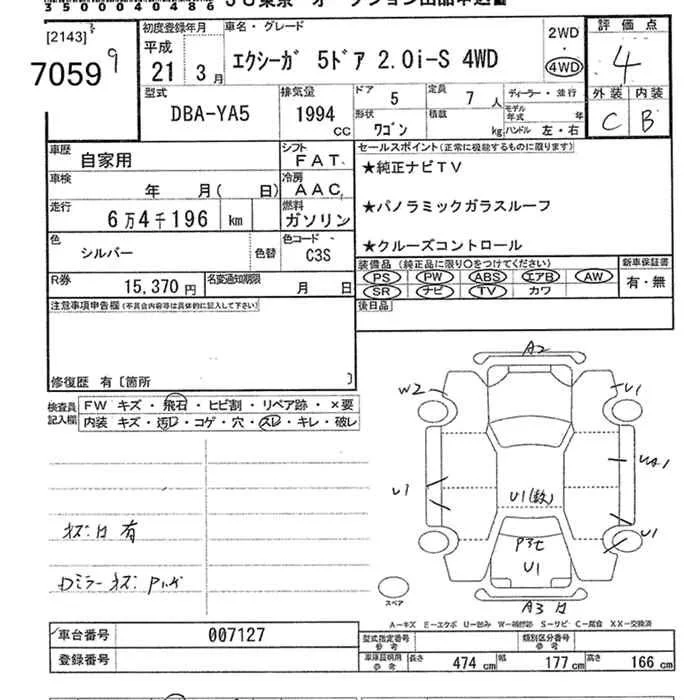 35000040486
[2143]
70599
初度登録年月
平成
21年3月
車名・グレード
エクシーガ 5ドア 2.0i-S 4WD
2WD
・
4WD
評価点
4
型式
DBA-YA5
排気量
1994
CC
ドア
5
定員
7人
形状
ワゴン
積載
kg
ディーラー・並行
モデル年式 年
ハンドル 左・右
外装 内装
C B
車歴
自家用
シフト
FAT
セールスポイント(正常に機能するものに限ります)
車検
年 月( 日)
冷房
AAC
★純正ナビTV
走行
6万4千196 km
燃料
ガソリン
★パノラミックガラスルーフ
色
シルバー
色替
色コード
C3S
★クルーズコントロール
R券
15,370円
名変通知期限
月 日
装備品(純正品に限り○をつけてください)
PS PW ABS エアB AW
SR ナビ TV カワ
新車保証書
有・無
注意事項申告欄(不具合内容等は具体的に記入して下さい)
後日品
修復歴 有〔箇所 〕
検査員記入欄
FW キズ・飛石・ヒビ割・リペア跡・×要
内装 キズ・汚レ・コゲ・穴・スレ・キレ・破レ
A2
W2
U1
UA1
U1
U1(数)
U1
U1
A3
スペア
A-キズ E-エクボ U-凹み W-補修跡 S-サビ C-腐食 XX-交換済
車台番号
007127
登録番号
型式指定番号
参考
類別区分番号
参考
車庫証明用
参考
長さ 474 cm
幅 177 cm
高さ 166 cm